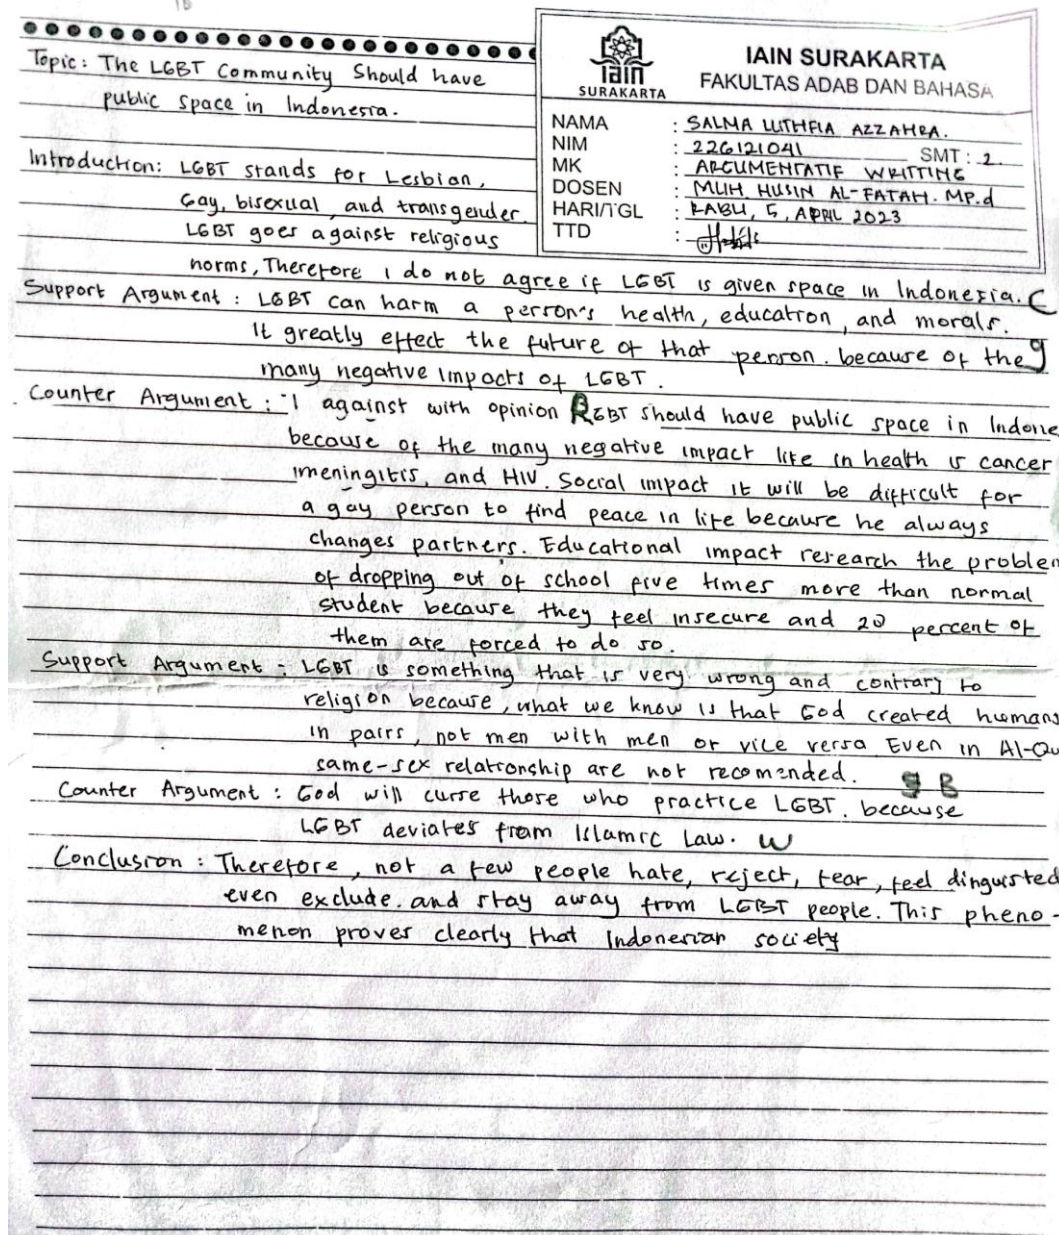 IAIN SURAKARTA
FAKULTAS ADAB DAN BAHASA
iain
SURAKARTA
NAMA : SALMA LUTHFIA AZZAHRA.
NIM : 226121041 SMT : 2.
MK : ARGUMENTATIF WRITTING
DOSEN : MUH. HUSIN AL-FATAH. MP.d
HARI/TGL : RABU, 5, APRIL 2023
TTD :
Topic : The LGBT Community Should have
public space in Indonesia.
Introduction: LGBT stands for Lesbian,
Gay, bisexual, and transgender.
LGBT goes against religious
norms, Therefore I do not agree if LGBT is given space in Indonesia. C
Support Argument : LGBT can harm a person's health, education, and morals.
It greatly effect the future of that person. because of the g
many negative impacts of LGBT.
Counter Argument : I against with opinion LGBT should have public space in Indone
because of the many negative impact like in health is cancer
meningitis, and HIV. Social impact it will be difficult for
a gay person to find peace in life because he always
changes partners. Educational impact research the problem
of dropping out of school five times more than normal
student because they feel insecure and 20 percent of
them are forced to do so.
Support Argument : LGBT is something that is very wrong and contrary to
religion because, what we know is that God created humans
in pairs, not men with men or vice versa Even in Al-Qu
same-sex relationship are not recomended. B
Counter Argument : God will curse those who practice LGBT. because
LGBT deviates from Islamic Law. W
Conclusion : Therefore, not a few people hate, reject, fear, feel dingusted
even exclude. and stay away from LGBT people. This pheno-
menon proves clearly that Indonesian society